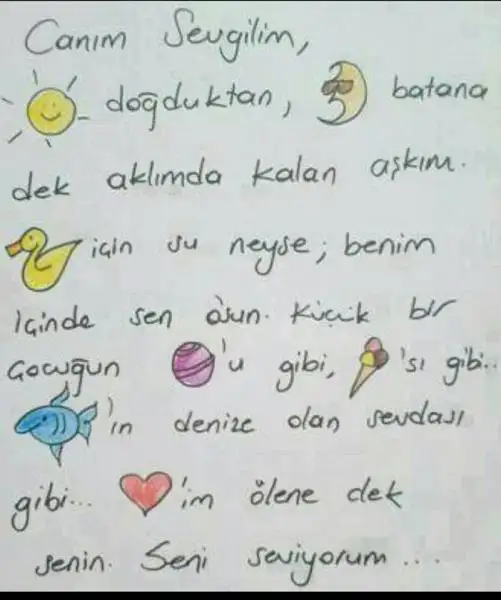 Canım Sevgilim,
doğduktan, batana
dek aklımda kalan aşkım.
için su neyse; benim
içinde sen o'sun. Küçük bir
Çocuğun 'u gibi, 'sı gibi..
'ın denize olan sevdası
gibi... 'im ölene dek
senin. Seni seviyorum ...